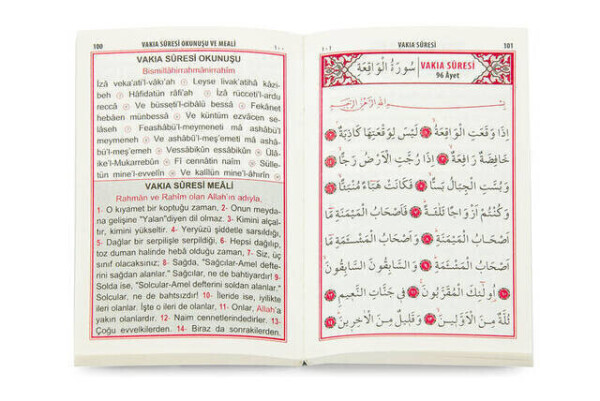 100 VAKIA SÛRESİ OKUNUŞU VE MEALİ ١٠٠
VAKIA SÛRESİ OKUNUŞU
Bismillâhirrahmânirrahîm
İzâ veka'ati'l-vâkı'ah Leyse livak'atihâ kâzi-
beh Hâfidatün râfi'ah İzâ rucceti'l-ardu
reccâ Ve büsseti'l-cibâlü bessâ Fekânet
hebâen münbessâ Ve küntüm ezvâcen se-
lâseh Feashâbü'l-meymeneti mâ ashâbü'l
meymeneh Ve ashâbü'l-meş'emeti mâ ashâ-
bü'l-meş'emeh Vessâbikûn essâbikûn Ülâ-
ike'l-Mukarrebûn Fî cennâtin naîm Sülle-
tün mine'l-evvelîn Ve kalîlün mine'l-âhirîn
VAKIA SÛRESİ MEÂLİ
Rahmân ve Rahîm olan Allah'ın adıyla,
1- O kıyamet bir koptuğu zaman, 2- Onun meyda-
na gelişine "Yalan"diyen dil olmaz. 3- Kimini alçal-
tır, kimini yükseltir. 4- Yeryüzü şiddetle sarsıldığı,
5- Dağlar bir serpilişle serpildiği. 6- Hepsi dağılıp,
toz duman halinde hebâ olduğu zaman, 7- Siz, üç
sınıf olacaksınız; 8- Sağda, "Sağcılar-Amel defte-
rini sağdan alanlar." Sağcılar, ne de bahtiyardır! 9-
Solda ise, "Solcular-Amel defterini soldan alanlar."
Solcular, ne de bahtsızdır! 10- İleride ise, iyilikte
ileri olanlar. İşte o ileri de olanlar, 11- Onlar, Allah'a
yakın olanlardır. 12- Naim cennetlerindedirler. 13-
Çoğu evvelkilerden. 14- Biraz da sonrakilerden.
١٠١ VAKIA SÛRESİ 101
سُورَةُ الْوَاقِعَةِ VAKIA SÛRESİ
96 Âyet
بِسْمِ اللّٰهِ الرَّحْمٰنِ الرَّحِيمِ
اِذَا وَقَعَتِ الْوَاقِعَةُ ١ لَيْسَ لِوَقْعَتِهَا كَاذِبَةٌ ٢
خَافِضَةٌ رَافِعَةٌ ٣ اِذَا رُجَّتِ الْاَرْضُ رَجًّا ٤
وَبُسَّتِ الْجِبَالُ بَسًّا ٥ فَكَانَتْ هَبَاءً مُنْبَثًّا ٦
وَكُنْتُمْ اَزْوَاجًا ثَلٰثَةً ٧ فَاَصْحَابُ الْمَيْمَنَةِ مَا
اَصْحَابُ الْمَيْمَنَةِ ٨ وَاَصْحَابُ الْمَشْـَٔمَةِ مَا
اَصْحَابُ الْمَشْـَٔمَةِ ٩ وَالسَّابِقُونَ السَّابِقُونَ
١٠ اُولٰئِكَ الْمُقَرَّبُونَ ١١ فِي جَنَّاتِ النَّعِيمِ
١٢ ثُلَّةٌ مِنَ الْاَوَّلِينَ ١٣ وَقَلِيلٌ مِنَ الْاٰخِرِينَ ١٤